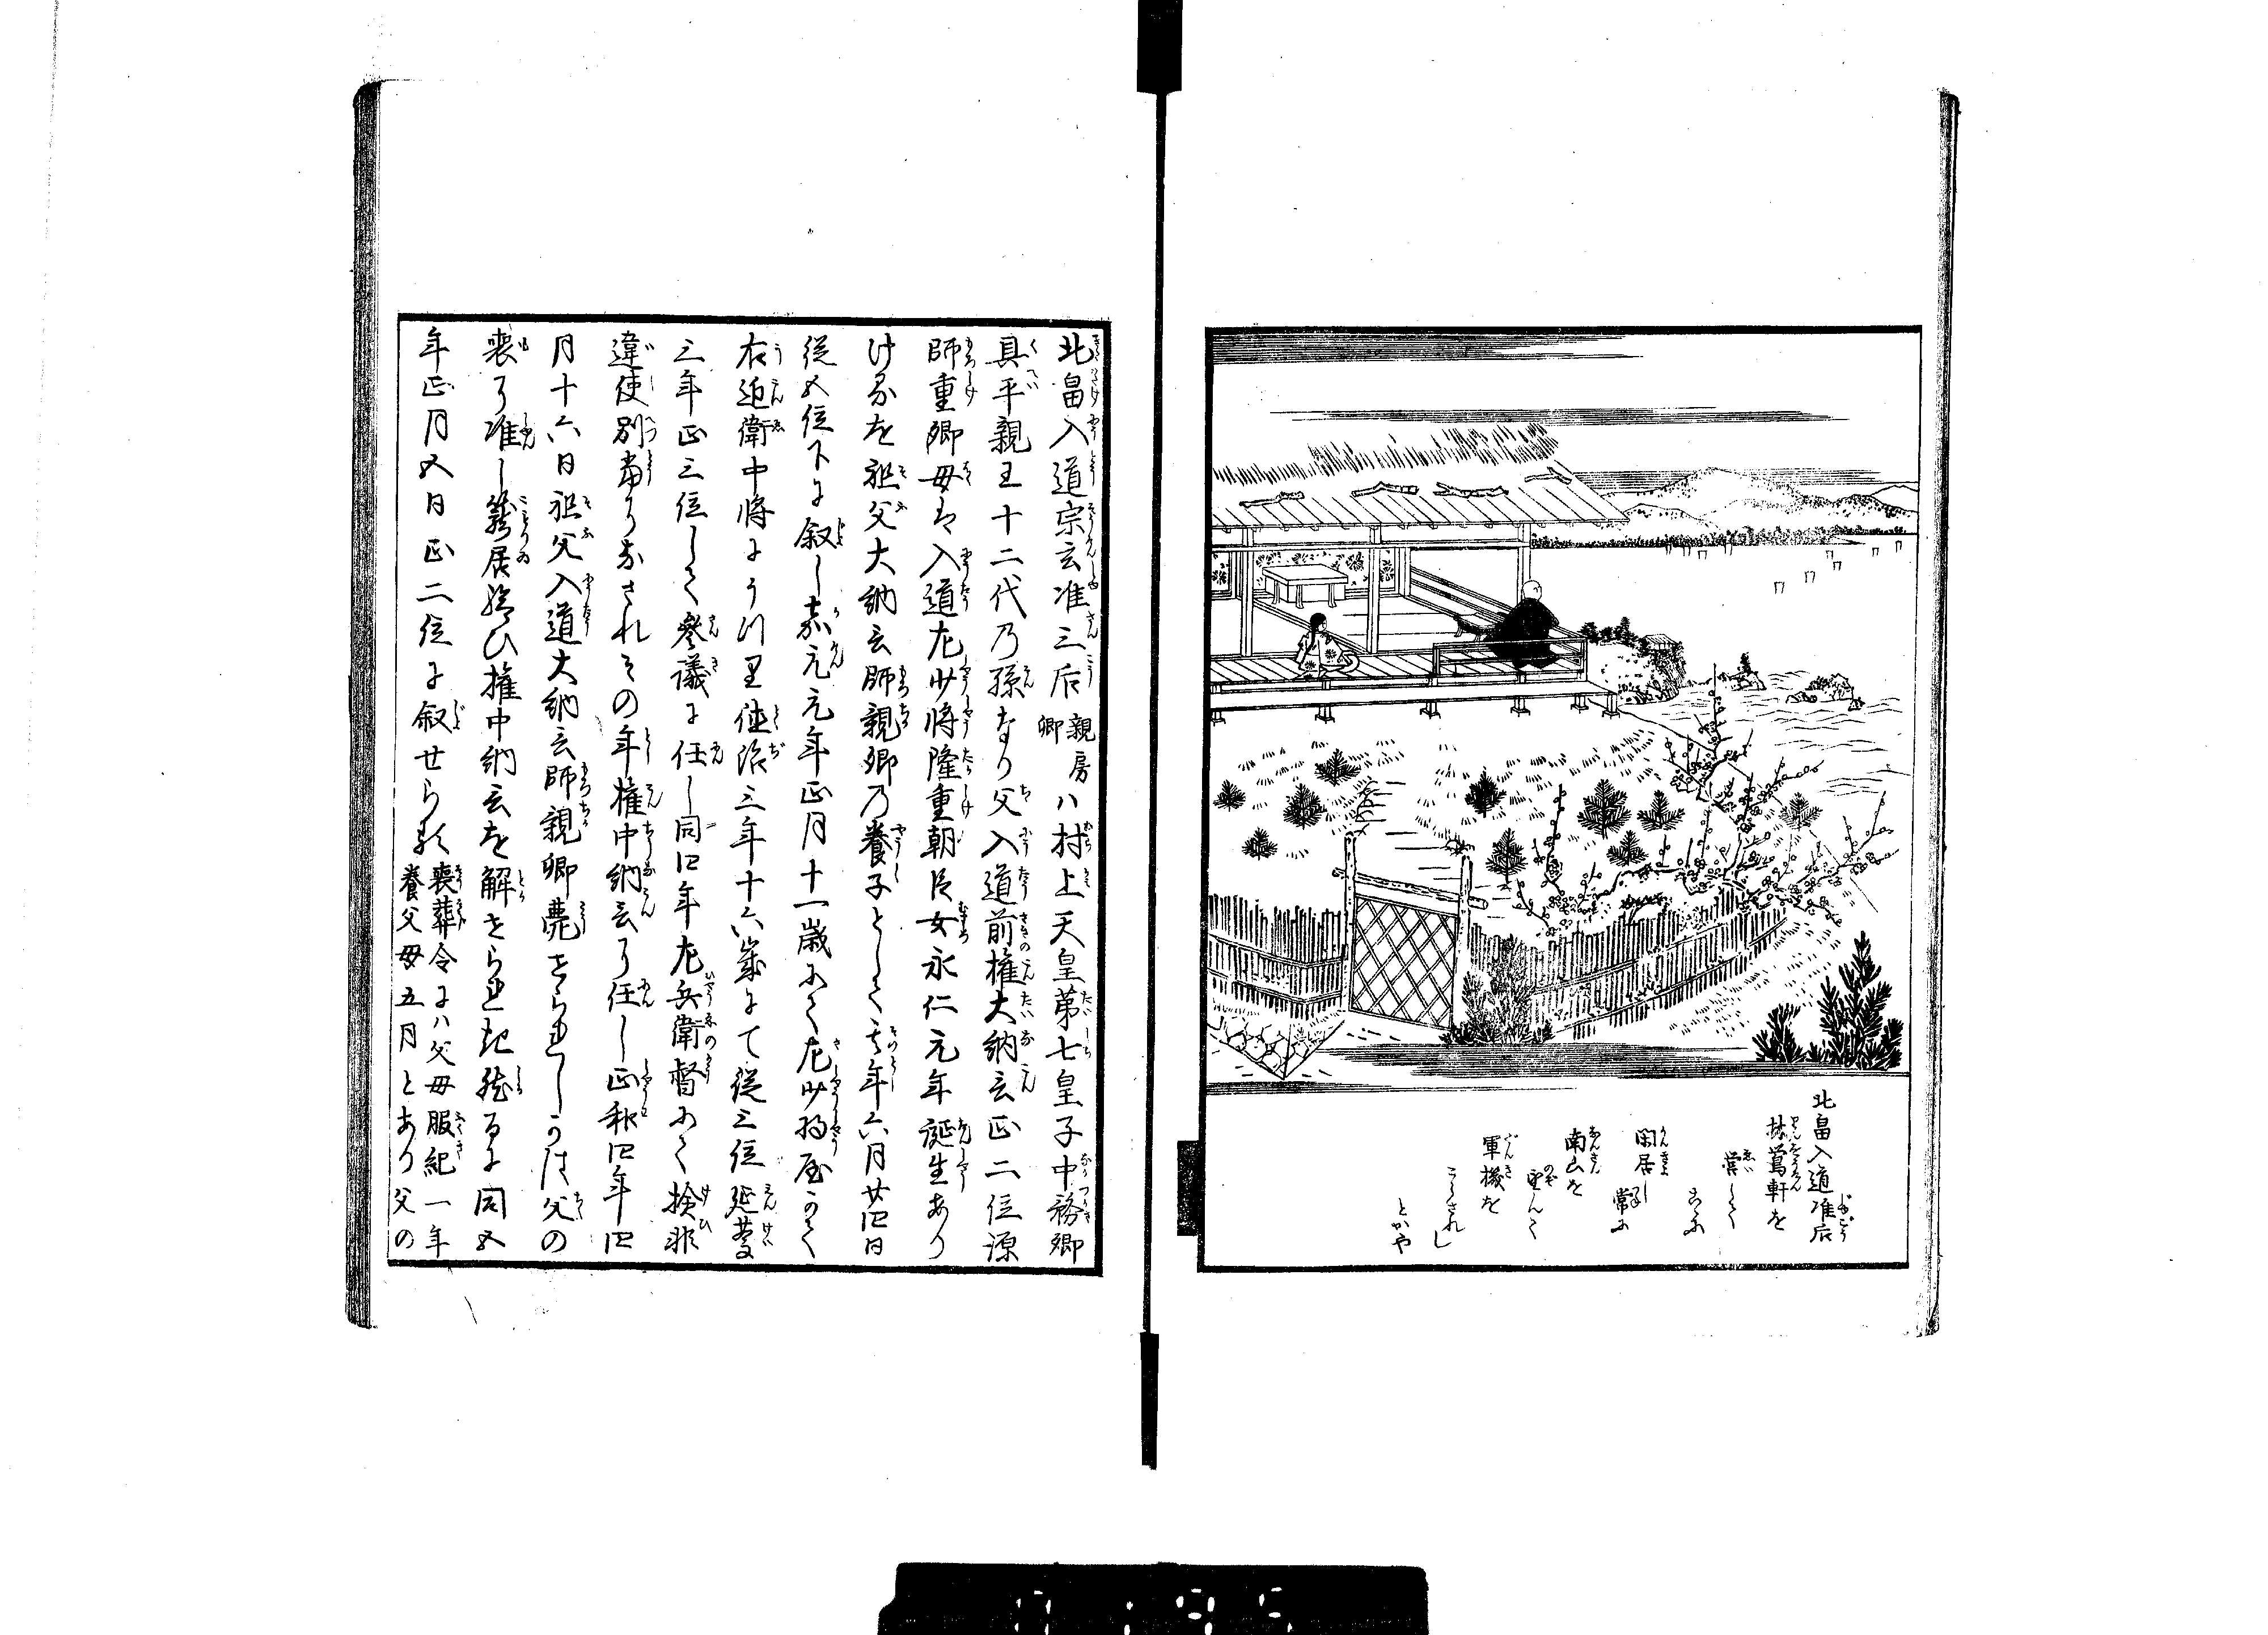 北畠入道准后
林鶯軒を
営して
こゝに
閑居し
常に
南山を
望んて
軍機を
こらされし
とかや
北畠入道宗玄准三后親房卿ハ村上天皇第七皇子中務卿
具平親王十二代乃孫なり父入道前権大納言正二位源
師重卿母は入道左少将隆重朝臣女永仁元年誕生あり
けるを祖父大納言師親卿乃養子として其年六月廿四日
従五位下に叙し嘉元元年正月十一歳にて左少将
右近衛中将にうけ里徳治三年十六歳にて従三位延慶
三年正三位して参議に任し同四年左兵衛督にて検非
違使別当りなされその年権中納言り任し正和四年四
月十六日祖父入道大納言師親卿薨せられしかは父の
喪り准し籠居給ひ権中納言を解せられ然るに同五
年正月五日正二位に叙せらる
喪葬令にハ父母服紀一年
養父母五月とあり父の